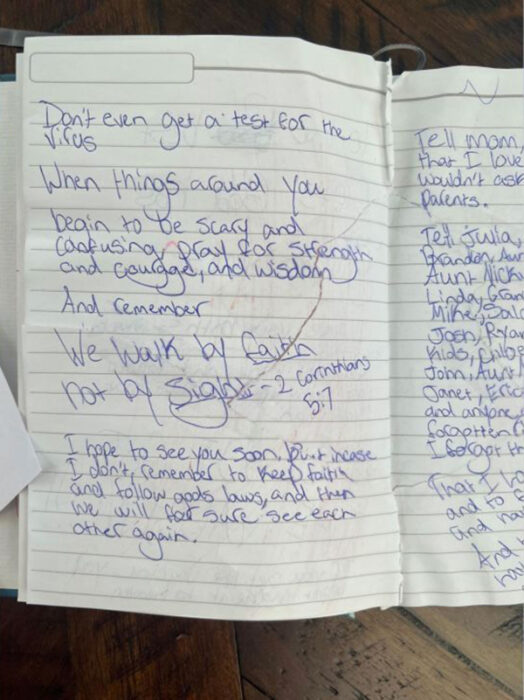 Don't even get a test for the
virus
When things around you
begin to be scary and
confusing, pray for strength
and courage, and wisdom
And remember
We walk by faith
not by sight - 2 Corinthians
5:7
I hope to see you soon, but incase
I don't, remember to keep faith
and follow gods laws, and then
we will for sure see each
other again.
Tell mom,
that I love
wouldn't ask
Parents.
Tell Julia,
Brandon, Aun
Aunt Nick
Linda, Gran
Mike,
Josh, Rya
Kids,
John, Aunt
Janet, Eric
and anyone
forgotten
I forgot th
That I
and to
and
And